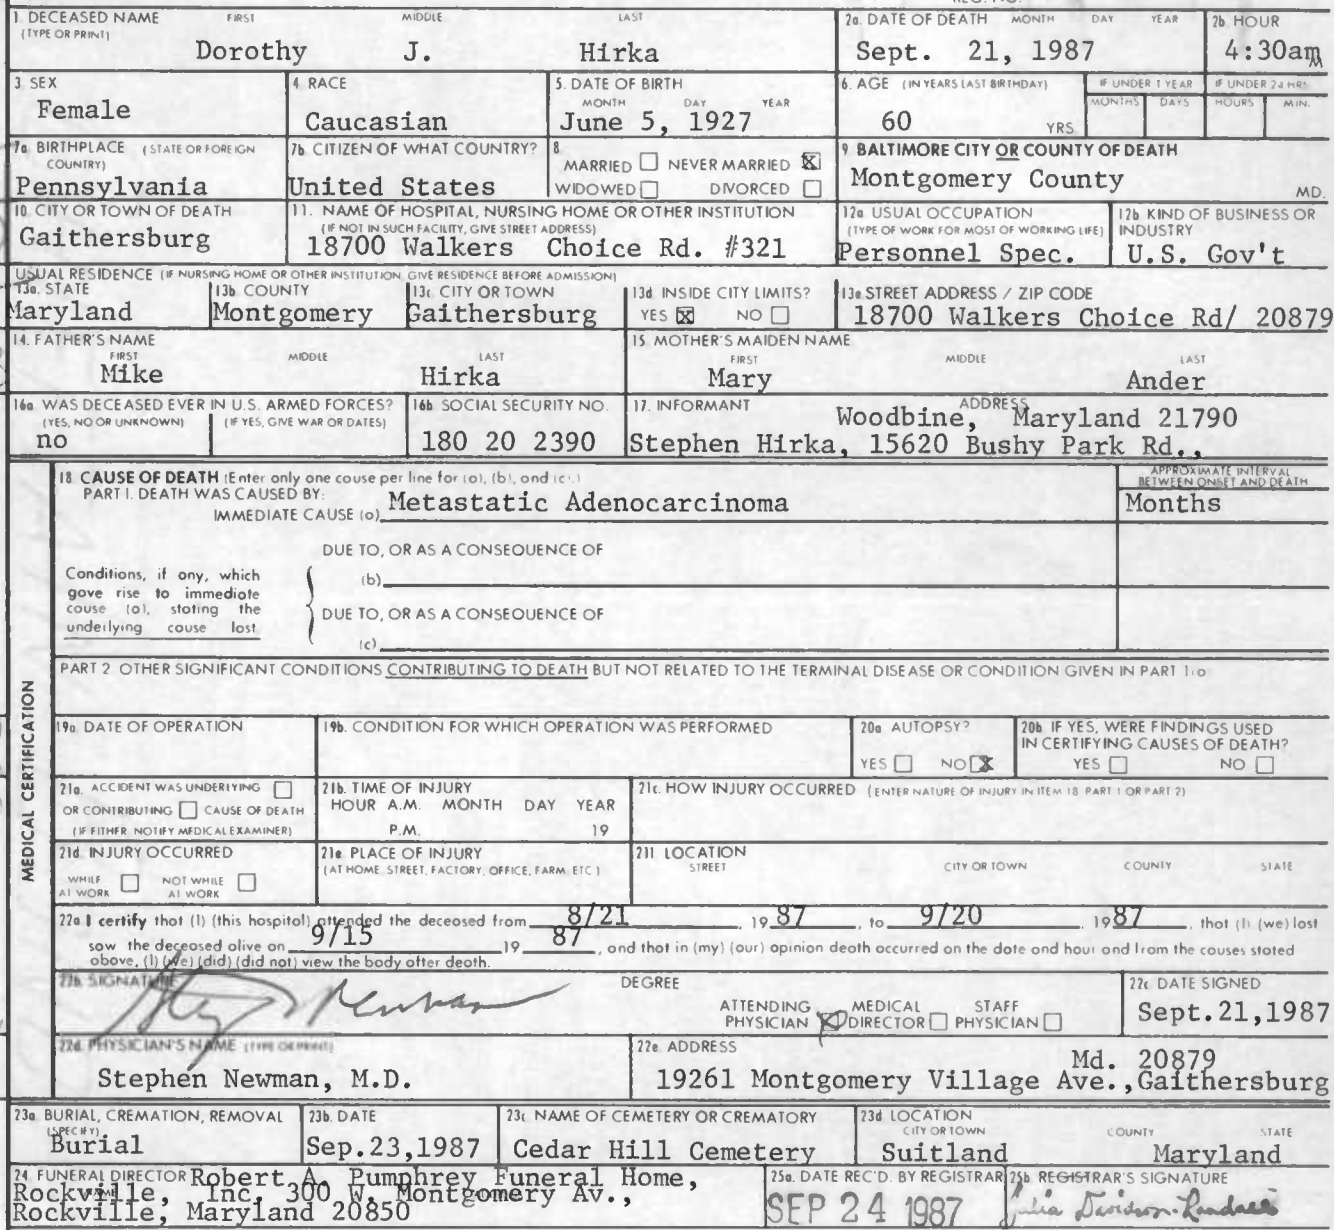 1. DECEASED NAME FIRST MIDDLE LAST
(TYPE OR PRINT)
Dorothy J. Hirka
2a. DATE OF DEATH MONTH DAY YEAR
Sept. 21, 1987
2b. HOUR
4:30am
3. SEX
Female
4. RACE
Caucasian
5. DATE OF BIRTH
MONTH DAY YEAR
June 5, 1927
6. AGE (IN YEARS LAST BIRTHDAY)
60 YRS
IF UNDER 1 YEAR
MONTHS DAYS
IF UNDER 24 HRS
HOURS MIN.
7a. BIRTHPLACE (STATE OR FOREIGN
COUNTRY)
Pennsylvania
7b. CITIZEN OF WHAT COUNTRY?
United States
8.
MARRIED NEVER MARRIED X
WIDOWED DIVORCED
9. BALTIMORE CITY OR COUNTY OF DEATH
Montgomery County MD.
10. CITY OR TOWN OF DEATH
Gaithersburg
11. NAME OF HOSPITAL, NURSING HOME OR OTHER INSTITUTION
(IF NOT IN SUCH FACILITY, GIVE STREET ADDRESS)
18700 Walkers Choice Rd. #321
12a. USUAL OCCUPATION
(TYPE OF WORK FOR MOST OF WORKING LIFE)
Personnel Spec.
12b. KIND OF BUSINESS OR
INDUSTRY
U.S. Gov't
USUAL RESIDENCE (IF NURSING HOME OR OTHER INSTITUTION GIVE RESIDENCE BEFORE ADMISSION)
13a. STATE
Maryland
13b. COUNTY
Montgomery
13c. CITY OR TOWN
Gaithersburg
13d. INSIDE CITY LIMITS?
YES X NO
13e. STREET ADDRESS / ZIP CODE
18700 Walkers Choice Rd/ 20879
14. FATHER'S NAME
FIRST MIDDLE LAST
Mike Hirka
15. MOTHER'S MAIDEN NAME
FIRST MIDDLE LAST
Mary Ander
16a. WAS DECEASED EVER IN U.S. ARMED FORCES?
(YES, NO OR UNKNOWN) (IF YES, GIVE WAR OR DATES)
no
16b. SOCIAL SECURITY NO.
180 20 2390
17. INFORMANT ADDRESS
Woodbine, Maryland 21790
Stephen Hirka, 15620 Bushy Park Rd.,
MEDICAL CERTIFICATION
18. CAUSE OF DEATH (Enter only one cause per line for (a), (b), and (c).)
PART I. DEATH WAS CAUSED BY:
IMMEDIATE CAUSE (a) Metastatic Adenocarcinoma
APPROXIMATE INTERVAL
BETWEEN ONSET AND DEATH
Months
DUE TO, OR AS A CONSEQUENCE OF
(b)
Conditions, if any, which
gave rise to immediate
cause (a), stating the
underlying cause last
DUE TO, OR AS A CONSEQUENCE OF
(c)
PART 2 OTHER SIGNIFICANT CONDITIONS CONTRIBUTING TO DEATH BUT NOT RELATED TO THE TERMINAL DISEASE OR CONDITION GIVEN IN PART 1(a)
19a. DATE OF OPERATION
19b. CONDITION FOR WHICH OPERATION WAS PERFORMED
20a. AUTOPSY?
YES NO X
20b. IF YES, WERE FINDINGS USED
IN CERTIFYING CAUSES OF DEATH?
YES NO
21a. ACCIDENT WAS UNDERLYING
OR CONTRIBUTING CAUSE OF DEATH
(IF EITHER, NOTIFY MEDICAL EXAMINER)
21b. TIME OF INJURY
HOUR A.M. MONTH DAY YEAR
P.M. 19
21c. HOW INJURY OCCURRED (ENTER NATURE OF INJURY IN ITEM 18 PART 1 OR PART 2)
21d. INJURY OCCURRED
WHILE AT WORK NOT WHILE AT WORK
21e. PLACE OF INJURY
(AT HOME, STREET, FACTORY, OFFICE, FARM, ETC.)
21f. LOCATION
STREET CITY OR TOWN COUNTY STATE
22a. I certify that (I) (this hospital) attended the deceased from 8/21, 19 87, to 9/20, 1987, that (I) (we) last
saw the deceased alive on 9/15 19 87, and that in (my) (our) opinion death occurred on the date and hour and from the causes stated
above, (I) (we) (did) (did not) view the body after death.
22b. SIGNATURE DEGREE
ATTENDING PHYSICIAN X MEDICAL DIRECTOR STAFF PHYSICIAN
22c. DATE SIGNED
Sept.21,1987
22d. PHYSICIAN'S NAME (TYPE OR PRINT)
Stephen Newman, M.D.
22e. ADDRESS
Md. 20879
19261 Montgomery Village Ave.,Gaithersburg
23a. BURIAL, CREMATION, REMOVAL
(SPECIFY)
Burial
23b. DATE
Sep.23,1987
23c. NAME OF CEMETERY OR CREMATORY
Cedar Hill Cemetery
23d. LOCATION
CITY OR TOWN COUNTY STATE
Suitland Maryland
24. FUNERAL DIRECTOR Robert A. Pumphrey Funeral Home,
NAME
Rockville, Inc. 300 W. Montgomery Av.,
Rockville, Maryland 20850
25a. DATE REC'D. BY REGISTRAR
SEP 24 1987
25b. REGISTRAR'S SIGNATURE
Julia Davidson-Randall